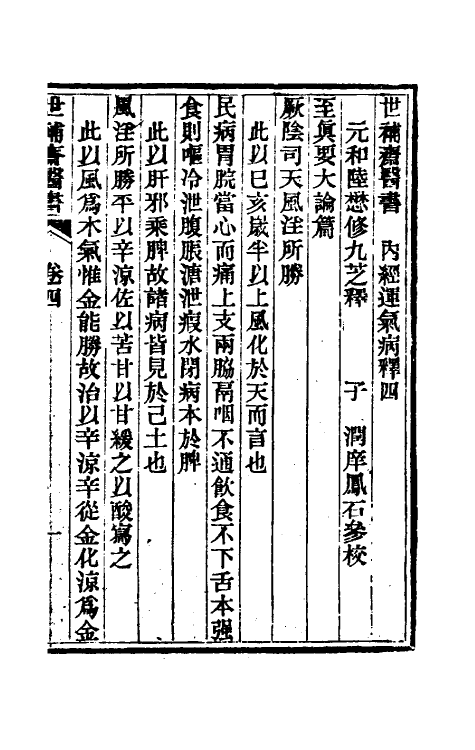 世補齋醫書　內經運氣病釋四
元和陸懋修九芝釋　子　潤庠鳳石參校
至眞要大論篇
厥陰司天風淫所勝
此以巳亥歲半以上風化於天而言也
民病胃脘當心而痛上支兩脇鬲咽不通飮食不下舌本强
食則嘔冷泄腹脹溏泄瘕水閉病本於脾
此以肝邪乘脾故諸病皆見於己土也
風淫所勝平以辛涼佐以苦甘以甘緩之以酸寫之
此以風爲木氣惟金能勝故治以辛涼辛從金化涼爲金
世補齋醫書　卷四　一